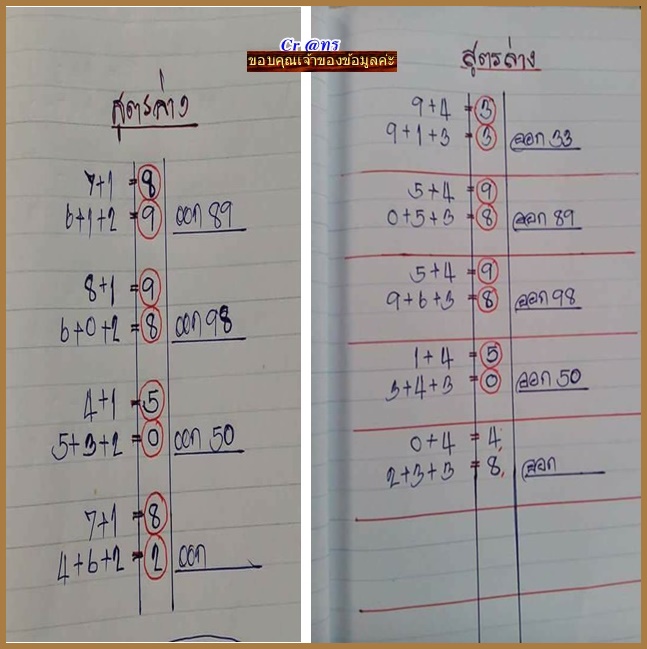 Cr @ทร
ขอบคุณเจ้าของข้อมูลค่ะ
สูตรล่าง
7+1 = 8
6+1+2 = 9 ออก 89
8+1 = 9
6+0+2 = 8 ออก 98
4+1 = 5
5+3+2 = 0 ออก 50
7+1 = 8
4+6+2 = 2 ออก
สูตรล่าง
9+4 = 3
9+1+3 = 3 ออก 33
5+4 = 9
0+5+3 = 8 ออก 89
5+4 = 9
9+6+3 = 8 ออก 98
1+4 = 5
3+4+3 = 0 ออก 50
0+4 = 4
2+3+3 = 8 ออก